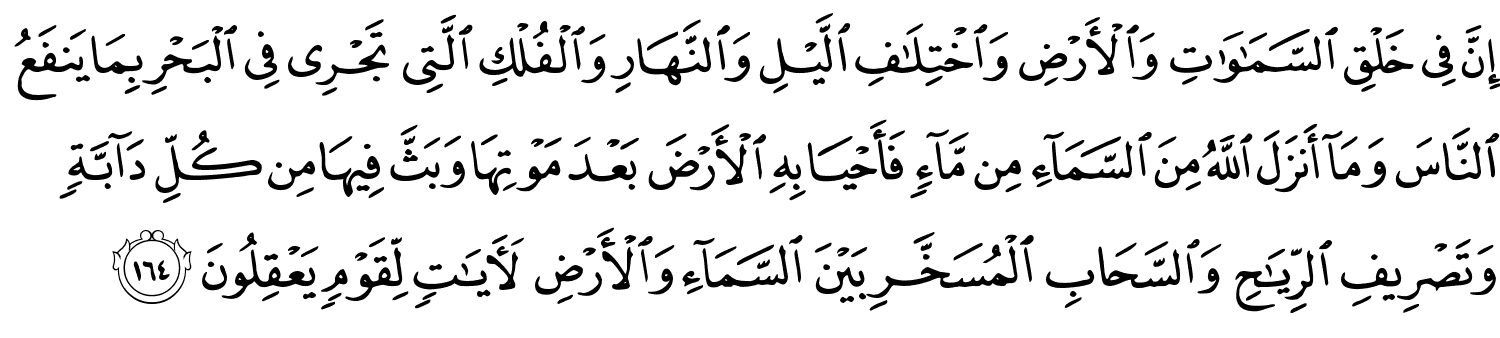 إِنَّ فِى خَلْقِ ٱلسَّمَـٰوَٰتِ وَٱلْأَرْضِ وَٱخْتِلَـٰفِ ٱلَّيْلِ وَٱلنَّهَارِ وَٱلْفُلْكِ ٱلَّتِى تَجْرِى فِى ٱلْبَحْرِ بِمَا يَنفَعُ
ٱلنَّاسَ وَمَآ أَنزَلَ ٱللَّهُ مِنَ ٱلسَّمَآءِ مِن مَّآءٍ فَأَحْيَا بِهِ ٱلْأَرْضَ بَعْدَ مَوْتِهَا وَبَثَّ فِيهَا مِن كُلِّ دَآبَّةٍ
وَتَصْرِيفِ ٱلرِّيَـٰحِ وَٱلسَّحَابِ ٱلْمُسَخَّرِ بَيْنَ ٱلسَّمَآءِ وَٱلْأَرْضِ لَـَٔايَـٰتٍ لِّقَوْمٍ يَعْقِلُونَ ١٦٤